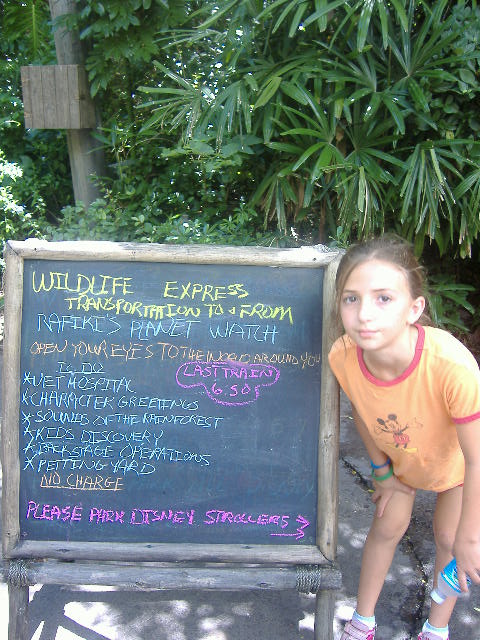 WILDLIFE EXPRESS
TRANSPORTATION TO & FROM
RAFIKI'S PLANET WATCH
OPEN YOUR EYES TO THE WORLD AROUND YOU
LAST TRAIN
6:50
TO DO
*VET HOSPITAL
*CHARACTER GREETINGS
*SOUNDS OF THE RAINFOREST
*KIDS DISCOVERY
*BACKSTAGE OPERATIONS
*PETTING YARD
NO CHARGE
PLEASE PARK DISNEY STROLLERS →